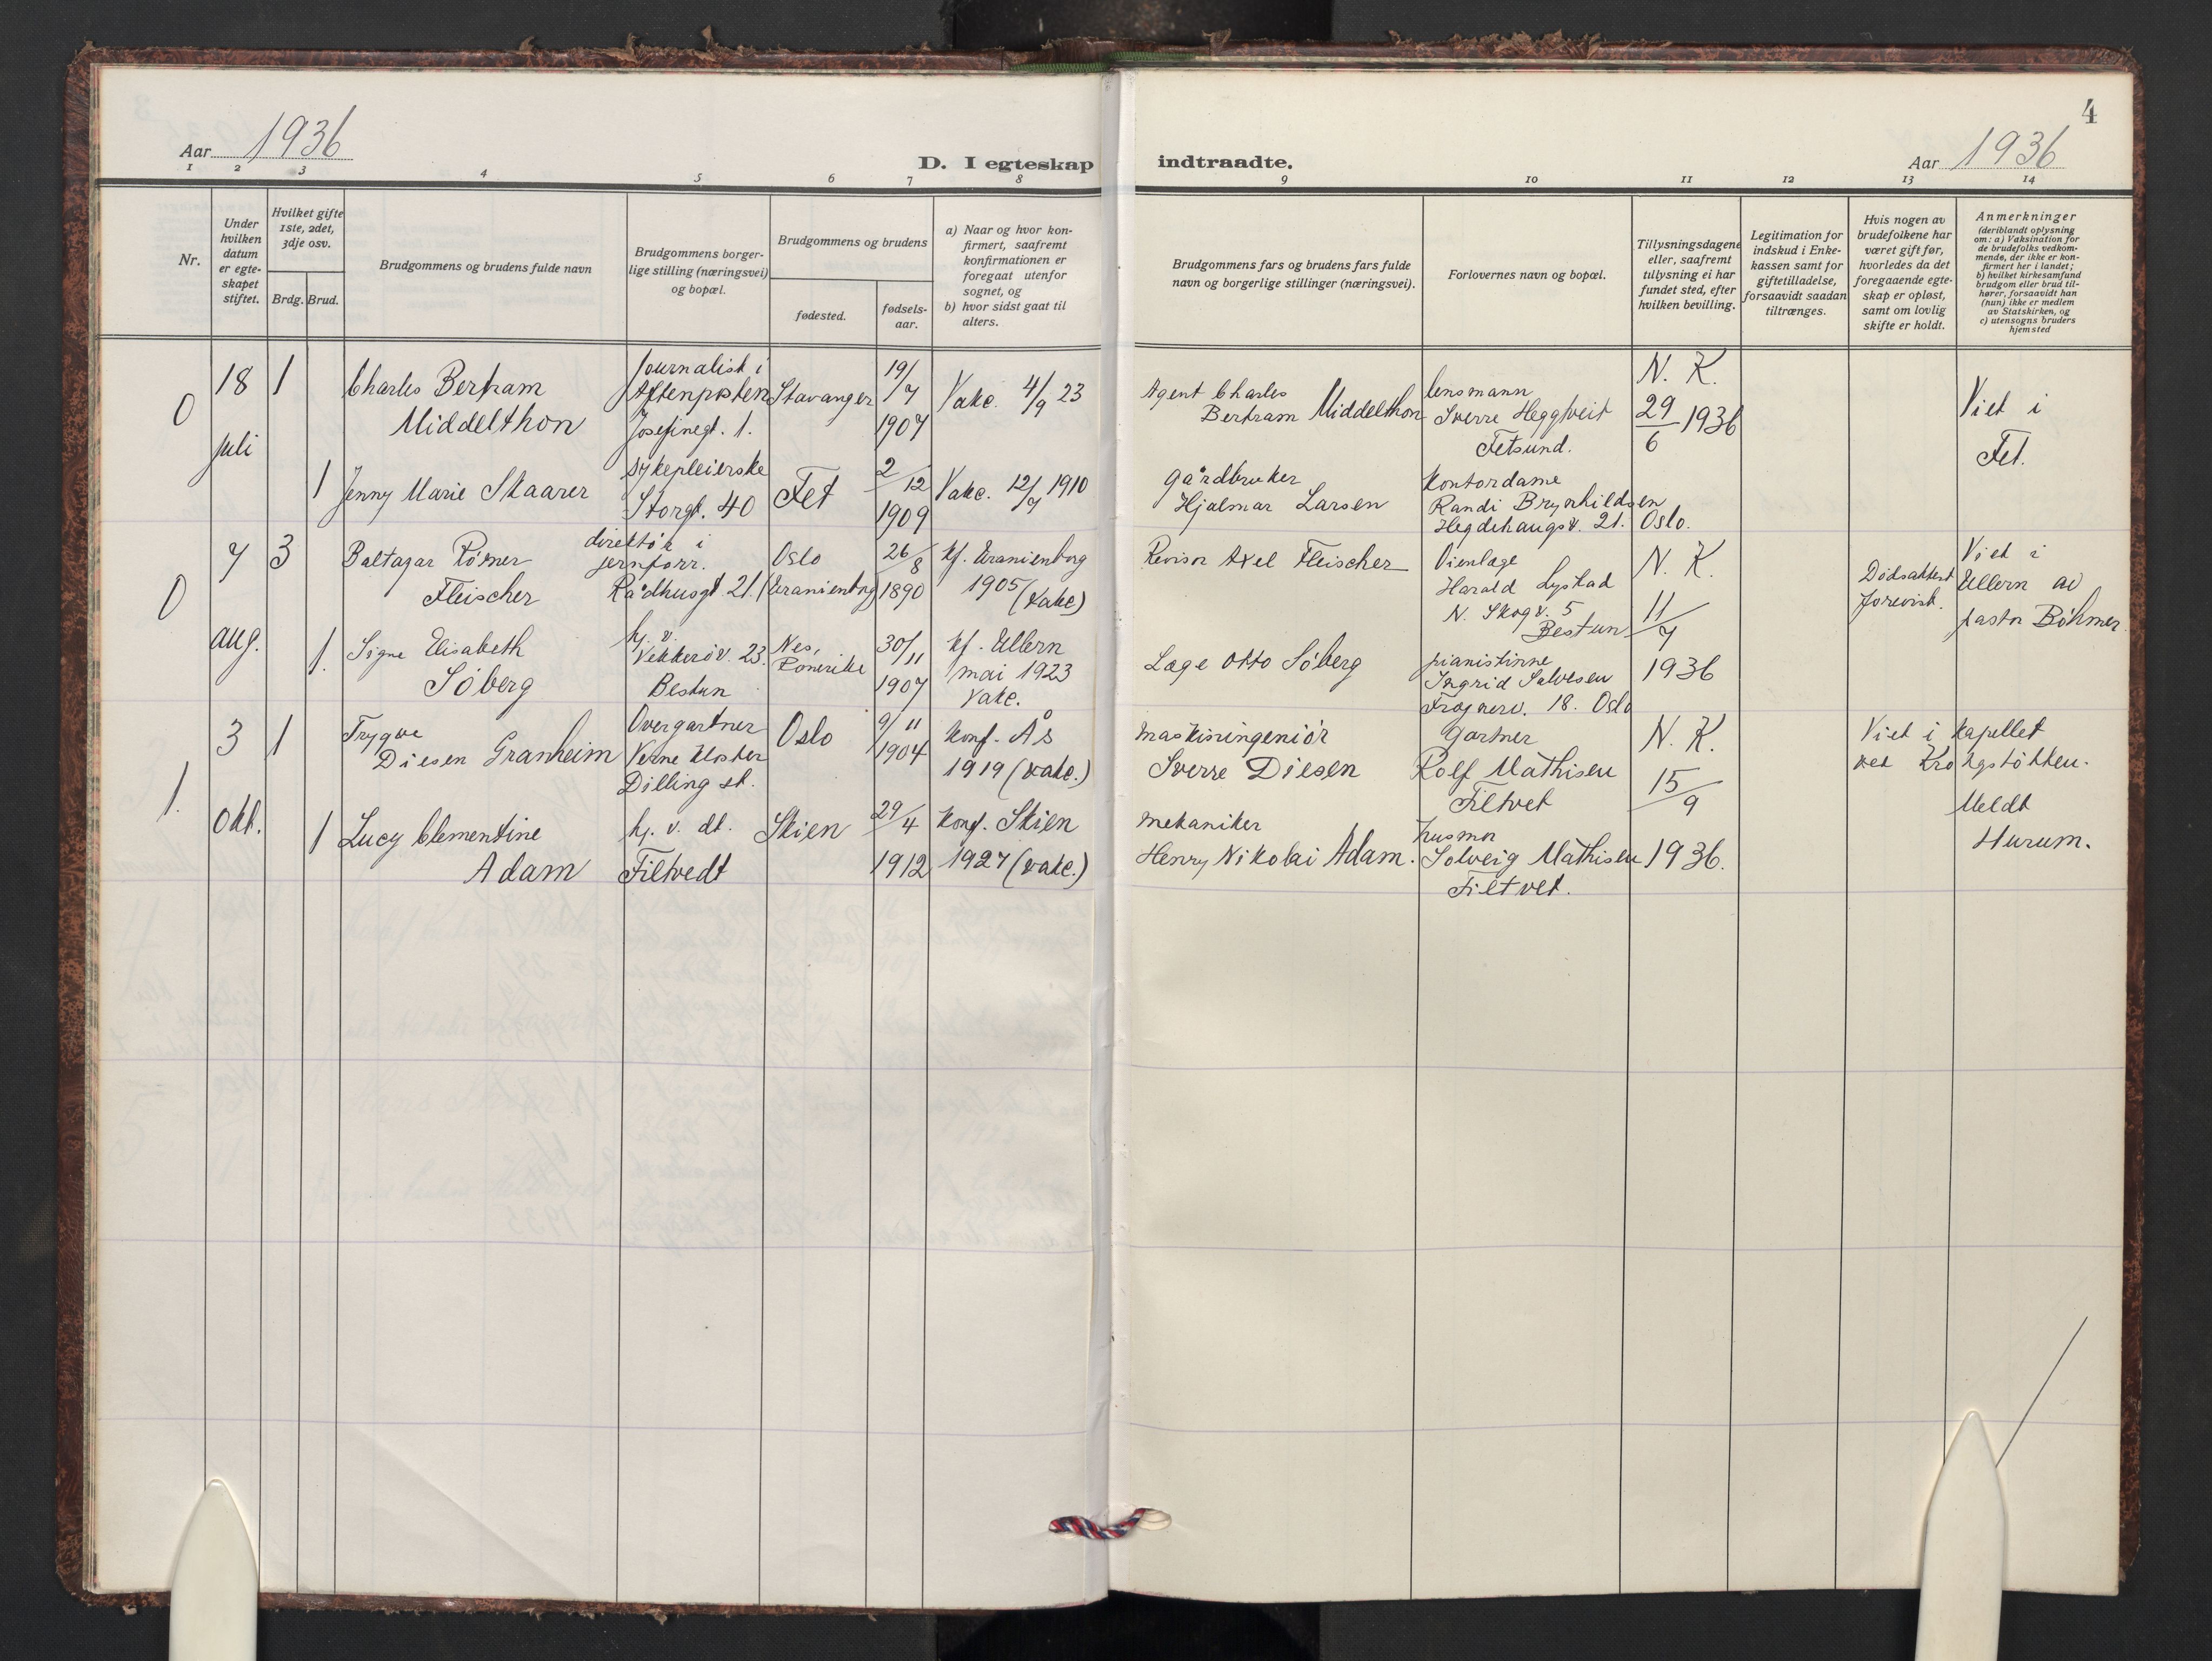 4
Aar 1936
D. I egteskap indtraadte.
Aar 1936
1 2 3 4 5 6 7 8 9 10 11 12 13 14
Nr.
Under
hvilken
datum
er egte-
skapet
stiftet.
Hvilket gifte
1ste, 2det,
3dje osv.
Brdg. Brud.
Brudgommens og brudens fulde navn
Brudgommens borger-
lige stilling (næringsvei)
og bopæl.
Brudgommens og brudens
fødested.
fødsels-
aar.
a) Naar og hvor kon-
firmert, saafremt
konfirmationen er
foregaat utenfor
sognet, og
b) hvor sidst gaat til
alters.
Brudgommens fars og brudens fars fulde
navn og borgerlige stillinger (næringsvei).
Forlovernes navn og bopæl.
Tillysningsdagene
eller, saafremt
tillysning ei har
fundet sted, efter
hvilken bevilling.
Legitimation for
indskud i Enke-
kassen samt for
giftetilladelse,
forsaavidt saadan
tiltrænges.
Hvis nogen av
brudefolkene har
været gift før,
hvorledes da det
foregaaende egte-
skap er opløst,
samt om lovlig
skifte er holdt.
Anmerkninger
(deriblandt oplysning
om: a) Vaksination for
de brudefolks vedkom-
mende, der ikke er kon-
firmert her i landet;
b) hvilket kirkesamfund
brudgom eller brud til-
hører, forsaavidt han
(hun) ikke er medlem
av Statskirken, og
c) utensogns bruders
hjemsted
0
18
juli
1
Charles Bertram
Middelthon
journalist i
Aftenposten
Josefinegt. 1.
Stavanger
19/7
1907
Vakc. 4/9 23
Agent Charles
Bertram Middelthon
lensmann
Sverre Heggtveit
Fetsund.
N. K.
29/6 1936
Viet i
Fet.
1
Jenny Marie Skaarer
sykepleierske
Storgt. 40
Fet
2/12
1909
Vakc. 12/7 1910
gårdbruker
Hjalmar Larsen
kontordame
Randi Brynhildsen
Hegdehaugsv. 21. Oslo.
0
7
aug.
3
Baltazar Römer
Fleischer
direktör i
jernforr.
Rådhusgt. 21.
Oslo
(Uranienborg)
26/8
1890
kf. Uranienborg
1905 (vakc)
Revisor Axel Fleischer
Öienlæge
Harald Lystad
N. Skogv. 5
Bestun
N. K.
11/7
1936
Dødsattest
forevist.
Viet i
Ullern av
pastor Böhmer.
1.
Signe Elisabeth
Söberg
hj. v.
Vekkeröv. 23.
Bestun
Nes,
Romerike
30/11
1907
kf. Ullern
mai 1923
vakc.
Læge Otto Söberg
pianistinne
Ingrid Salvesen
Frognerv. 18. Oslo
1.
3
okt.
1
Trygve
Diesen Granheim
Overgartner
Verne kloster
Dilling st.
Oslo
9/11
1904
konf. Ås
1919 (vakc.)
maskiningeniör
Sverre Diesen
Gartner
Rolf Mathisen
Filtvet
N. K.
15/9
1936.
Viet i kapellet
ved Krogstøtten.
Meldt
Hurum.
1
Lucy Clementine
Adam
hj. v. dt.
Filtvedt
Skien
29/4
1912
konf. Skien
1927 (vakc.)
mekaniker
Henry Nikolai Adam.
husmor
Solveig Mathisen
Filtvet.